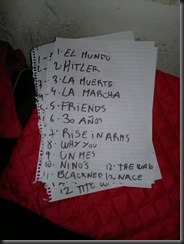 1. EL MUNDO
2. HITLER
3. LA MUERTE
4. LA MARCHA
5. FRIENDS
6. 30 AÑOS
7. RISE IN ARMS
8. WHY YOU
9. UN MES
10. NIÑO'S 12. THE
11. BLACKNED 13. NACE
12. THE